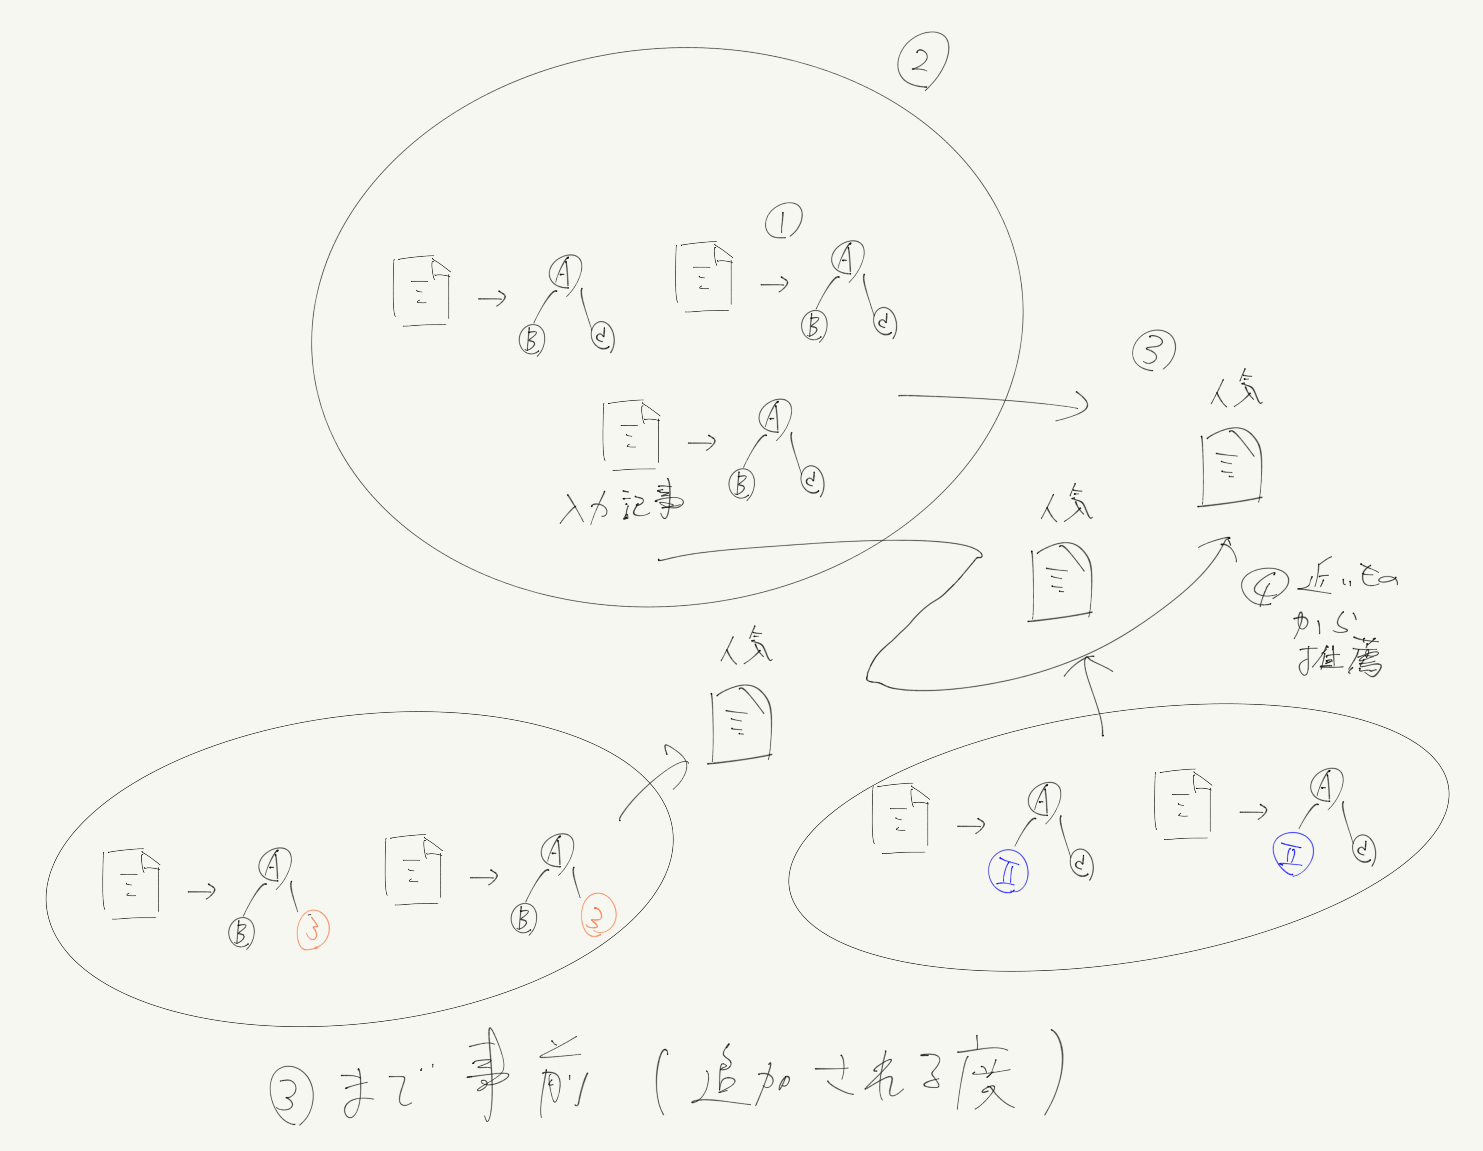 ②
①
A
B
C
A
B
C
A
B
C
入力記事
③
人気
人気
④ 近いもの
から
推薦
人気
A
B
3
A
B
3
A
II
C
A
II
C
③まで事前(追加される度)